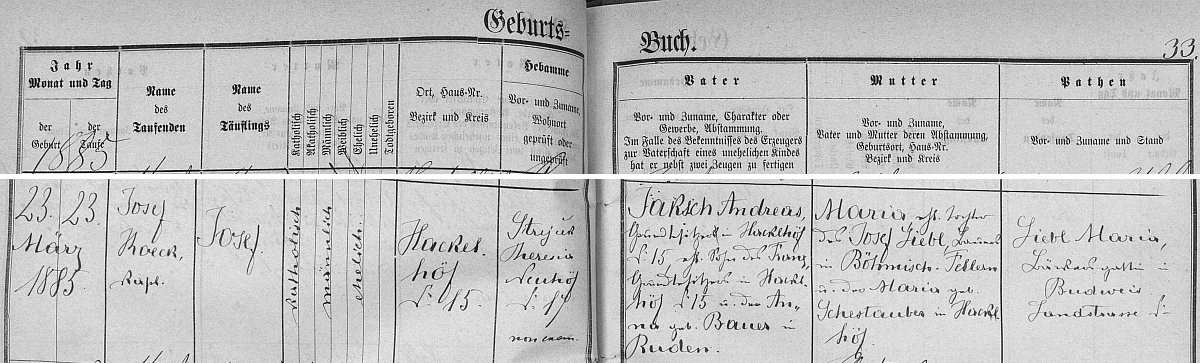 Geburts=
Buch.
33.
Jahr
Monat und Tag
der Geburt
der Taufe
1885
Name
des
Taufenden
Name
des
Täuflings
Katholisch
Akatholisch
Männlich
Weiblich
Ehelich
Unehelich
Todtgeboren
Ort, Haus-Nr.
Bezirk und Kreis
Hebamme
Vor- und Zuname,
Wohnort
geprüft oder
ungeprüft
Vater
Vor- und Zuname, Charakter oder
Gewerbe, Abstammung.
Im Falle des Bekenntnisses des Erzeugers
zur Vaterschaft eines unehelichen Kindes
hat er nebst zwei Zeugen zu fertigen
Mutter
Vor- und Zuname,
Vater und Mutter deren Abstammung,
Geburtsort, Haus-Nr.
Bezirk und Kreis
Pathen
Vor- und Zuname und Stand
23. 23.
März
1885.
Josef
Kapl.
Josef.
katholisch
männlich
ehelich.
Hackel
höf
15.
Theresia
Neuhöf
non exam.
Jaksch Andreas,
Grundbesitzer in Hacklhöf
15 ehl. Sohn des Franz,
Grundbesitzers in Hackl
höf 15 u. der An
na geb. Bauer in
Ruden.
Maria ehl. Tochter
des Josef Liebl, Bauers
in Böhmisch-Fellern
u. der Maria geb.
Schestauber in Hackl
höf.
Liebl Maria,
Bäckersgattin in
Budweis
Landstrasse